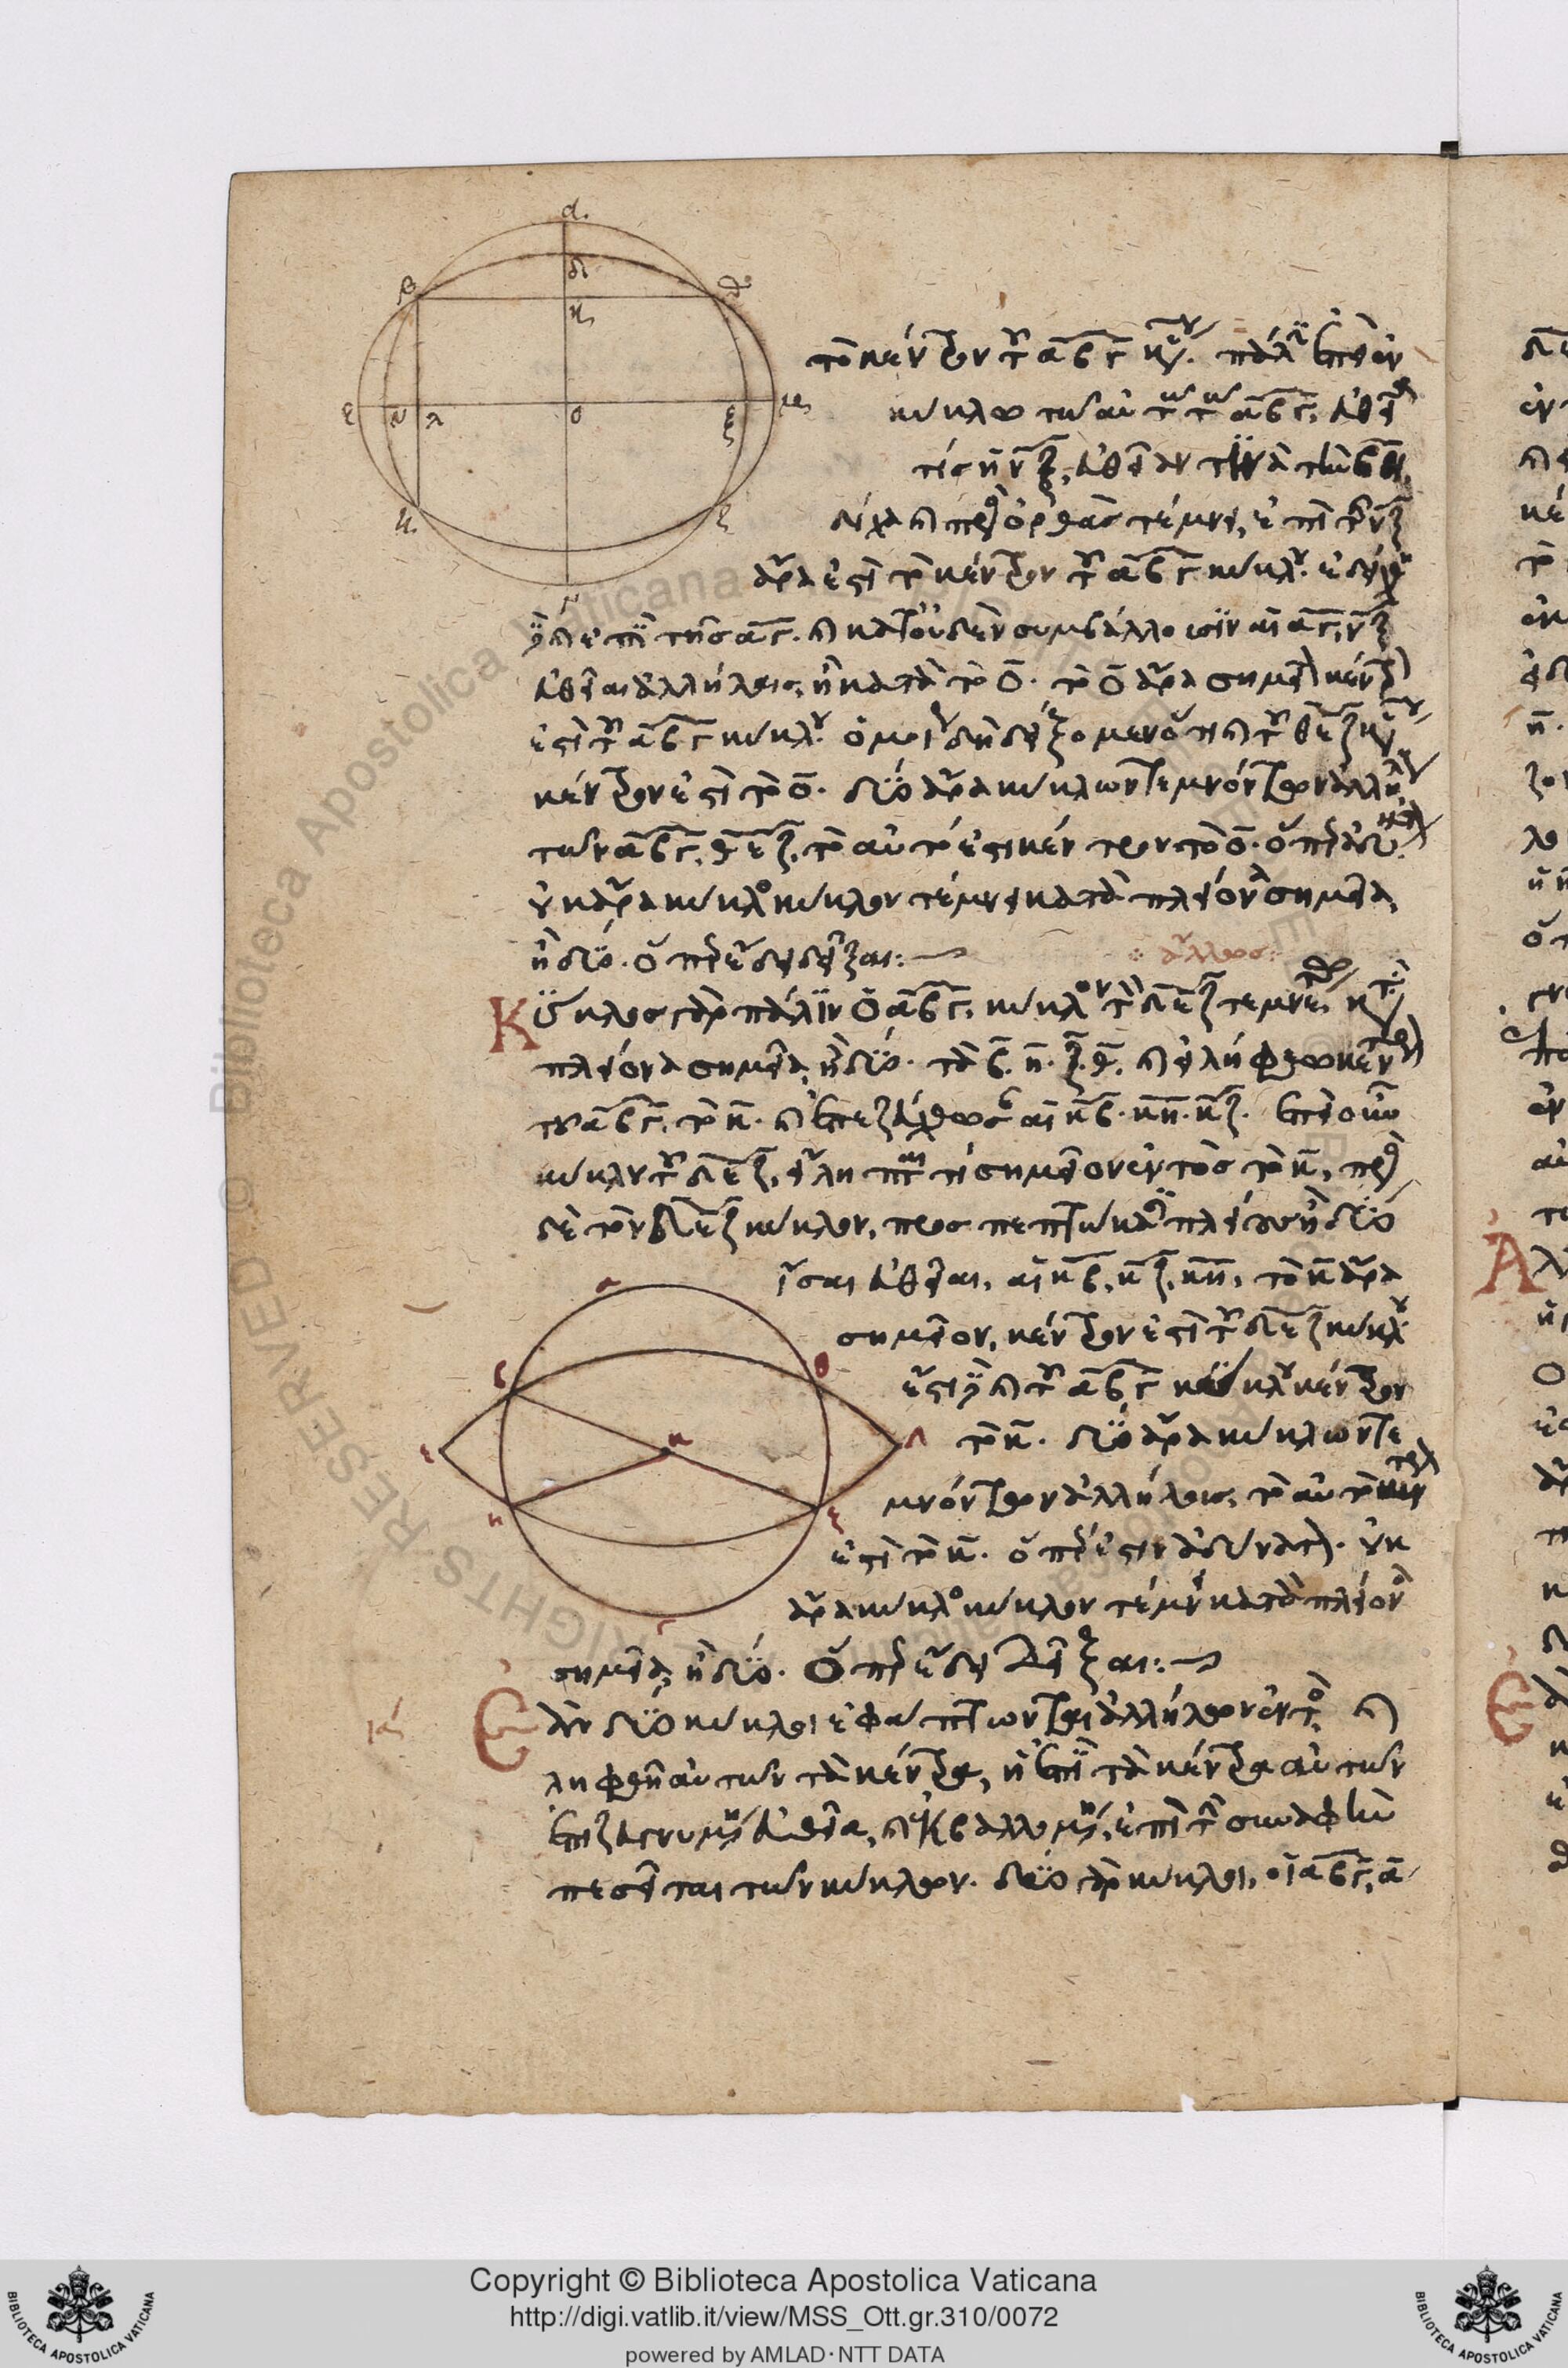 τὸ κέντρον τοῦ αβγ κύκλου. πάλιν ἐπεὶ ἐν
κύκλω τῶ αὐτῶ τῶ αβγ, εὐθεῖά
τις ἡ νξ, εὐθεῖαν τινὰ τὴν βη,
δίχα καὶ πρὸς ὀρθὰς τέμνει, ἐπὶ τῆς νξ
ἄρα ἐστὶ τὸ κέντρον τοῦ αβγ κύκλου. ἐδείχθη
δὲ καὶ ἐπὶ τῆς αγ. καὶ κατ' οὐδὲν συμβάλλουσιν αἱ αγ, νξ
εὐθεῖαι ἀλλήλαις, ἢ κατὰ τὸ ο. τὸ ο ἄρα σημεῖον κέντρον
ἐστὶ τοῦ αβγ κύκλου. ὁμοίως δὴ δείξομεν ὅτι καὶ τοῦ θεζ κύκλου
κέντρον ἐστὶ τὸ ο. δύο ἄρα κύκλων τεμνόντων ἀλλήλους
τῶν αβγ, θεζ, τὸ αὐτό ἐστι κέντρον τὸ ο. ὅπερ ἀδύνατον.
οὐκ ἄρα κύκλος κύκλον τέμνει κατὰ πλείονα σημεῖα,
ἢ δύο. ὅπερ ἔδει δεῖξαι:
ἄλλως:
Κύκλος γὰρ πάλιν ὁ αβγ, κύκλον τὸν δεζ τεμνέτω κατὰ
πλείονα σημεῖα, ἢ δύο. τὰ β. η. ζ. θ. καὶ εἰλήφθω κέντρον
τοῦ αβγ, τὸ κ. καὶ ἐπεζεύχθωσαν αἱ κβ. κη. κζ. ἐπεὶ οὖν
κύκλου τοῦ δεζ, εἴληπταί τι σημεῖον ἐντὸς τὸ κ, πρὸς
δὲ τὸν δεζ κύκλον, προσπεπτώκασι πλείους ἢ δύο
ἴσαι εὐθεῖαι, αἱ κβ, κζ, κη, τὸ κ ἄρα
σημεῖον, κέντρον ἐστὶ τοῦ δεζ κύκλου.
ἔστι δὲ καὶ τοῦ αβγ κύκλου κέντρον
τὸ κ. δύο ἄρα κύκλων τε
μνόντων ἀλλήλους, τὸ αὐτὸ κέντρον
ἐστὶ τὸ κ. ὅπερ ἐστὶν ἀδύνατον. οὐκ
ἄρα κύκλος κύκλον τέμνει κατὰ πλείονα
σημεῖα, ἢ δύο. Ὅπερ ἔδει Δεῖξαι:
ια Ἐὰν δύο κύκλοι ἐφάπτωνται ἀλλήλων ἐντός, καὶ
ληφθῆ αὐτῶν τὰ κέντρα, ἡ ἐπὶ τὰ κέντρα αὐτῶν
ἐπιζευγνυμένη εὐθεῖα, καὶ ἐκβαλλομένη, ἐπὶ τὴν συναφὴν
πεσεῖται τῶν κύκλων. δύο γὰρ κύκλοι, οἱ αβγ, α
Copyright © Biblioteca Apostolica Vaticana
http://digi.vatlib.it/view/MSS_Ott.gr.310/0072
powered by AMLAD·NTT DATA